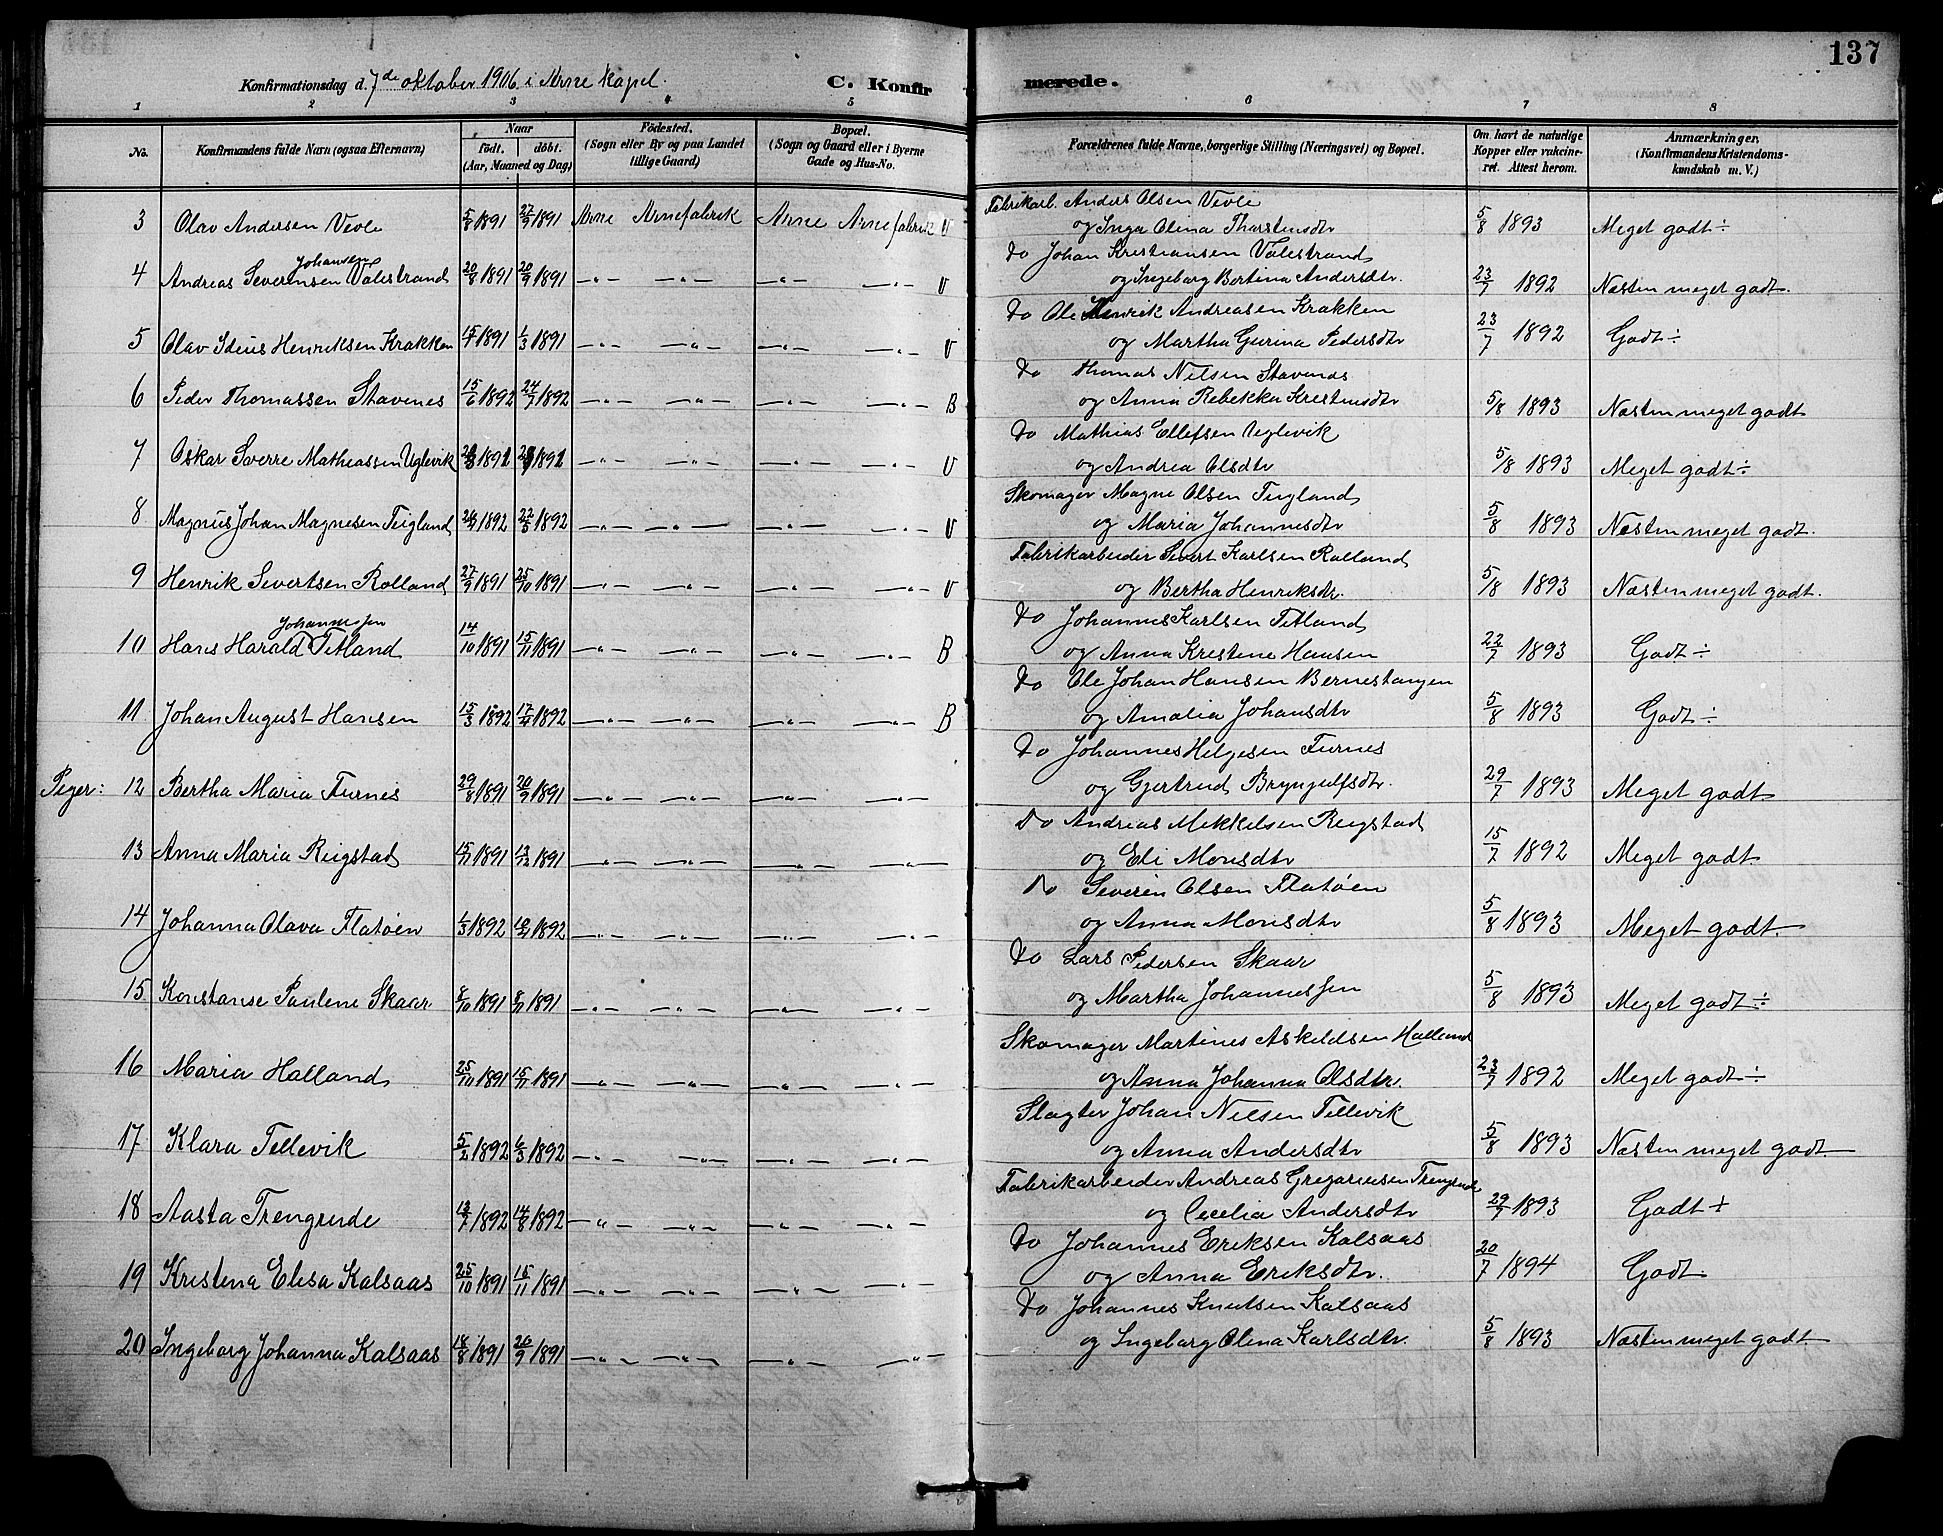 137
Konfirmationsdag d. 7de oktober 1906 i Arne Kapel. C. Konfirmerede.
1 2 3 4 5 6 7 8
No. Konfirmandens fulde Navn (ogsaa Efternavn) Naar født. døbt. (Aar, Maaned og Dag) Fødested. (Sogn eller By og paa Landet tillige Gaard) Bopæl. (Sogn og Gaard eller i Byerne Gade og Hus-No. Forældrenes fulde Navne, borgerlige Stilling (Næringsvei) og Bopæl. Om havt de naturlige Kopper eller vakcineret. Attest herom. Anmærkninger, (Konfirmandens Kristendomskundskab m. V.)
Fabrikarb. Anders Olsen Vevle
3 Olav Andersen Vevle 5/8 1891 27/9 1891 Arne Arnefabrik Arne Arnefabrik V og Inga Olina Thorstensdtr 5/8 1893 Meget godt ÷
Johansen Do Johan Kristiansen Valestrand
4 Andreas Severinsen Valestrand 20/8 1891 20/9 1891 —"— —"— —"— —"— V og Ingeborg Bertina Andersdtr. 23/7 1892 Næsten meget godt.
Do Ole Henrik Andreasen Krakken
5 Olav Idius Henriksen Krakken 1891 1/3 1891 —"— —"— —"— —"— V og Martha Gurina Pedersdtr 23/7 1892 Godt ÷
Do Thomas Nilsen Stavenes
6 Peder Thomassen Stavenes 15/6 1892 24/7 1892 —"— —"— —"— —"— B og Anna Rebekka Kristensdtr 5/8 1893 Næsten meget godt
Do Mathias Ellefsen Uglevik
7 Oskar Sverre Mathiassen Uglevik 1891 1891 —"— —"— —"— —"— V og Andrea Olsdtr 5/8 1893 Meget godt ÷
Skomager Magne Olsen Tugland
8 Magnus Johan Magnesen Teigland 1892 22/5 1892 —"— —"— —"— —"— V og Maria Johannesdtr 5/8 1893 Næsten meget godt.
Fabrikarbeider Sivert Karlsen Rolland
9 Henrik Severtsen Rolland 27/9 1891 25/10 1891 —"— —"— —"— —"— V og Bertha Henriksdtr. 5/8 1893 Næsten meget godt.
Johannessen Do Johannes Karlsen Titland
10 Hans Harald Titland 14/10 1891 15/11 1891 —"— —"— —"— —"— B og Anna Kristine Hansen 22/7 1893 Godt ÷
Do Ole Johan Hansen Bernestangen
11 Johan August Hansen 15/3 1892 17/4 1892 —"— —"— —"— —"— B og Amalia Johansdtr 5/8 1893 Godt ÷
Do Johannes Helgesen Furnes
Piger: 12 Bertha Maria Furnes 29/8 1891 20/9 1891 —"— —"— —"— —"— og Gjertrud Bryngelfsdtr. 29/7 1893 Meget godt
Do Andreas Mikkelsen Reigstad
13 Anna Maria Reigstad 15/11 1891 13/12 1891 —"— —"— —"— —"— og Eli Monsdtr 15/7 1892 Meget godt
Do Severin Olsen Flatøen
14 Johanna Olava Flatøen 1/3 1892 1892 —"— —"— —"— —"— og Anna Monsdtr 5/8 1893 Meget godt.
Do Lars Pedersen Skaar
15 Konstanse Pauline Skaar 8/10 1891 8/11 1891 —"— —"— —"— —"— og Martha Johannessen 5/8 1893 Meget godt ÷
Skomager Martines Askildsen Halland
16 Maria Halland 25/10 1891 15/11 1891 —"— —"— —"— —"— og Anna Johanna Olsdtr. 23/7 1892 Meget godt ÷
Slagter Johan Nilsen Tellevik
17 Klara Tellevik 5/2 1892 6/3 1892 —"— —"— —"— —"— og Anna Andersdtr 5/8 1893 Næsten meget godt
Fabrikarbeider Andreas Gregoriusen Trengrude
18 Aasta Trengrude 13/7 1892 14/8 1892 —"— —"— —"— —"— og Cecelia Andersdtr 29/7 1893 Godt +
Do Johannes Eriksen Kalsaas
19 Kristina Elisa Kalsaas 25/10 1891 15/11 1891 —"— —"— —"— —"— og Anna Eriksdtr. 20/7 1894 Godt
Do Johannes Knutsen Kalsaas
20 Ingeborg Johanna Kalsaas 18/8 1891 20/9 1891 —"— —"— —"— —"— og Ingeborg Olina Karlsdtr. 5/8 1893 Næsten meget godt